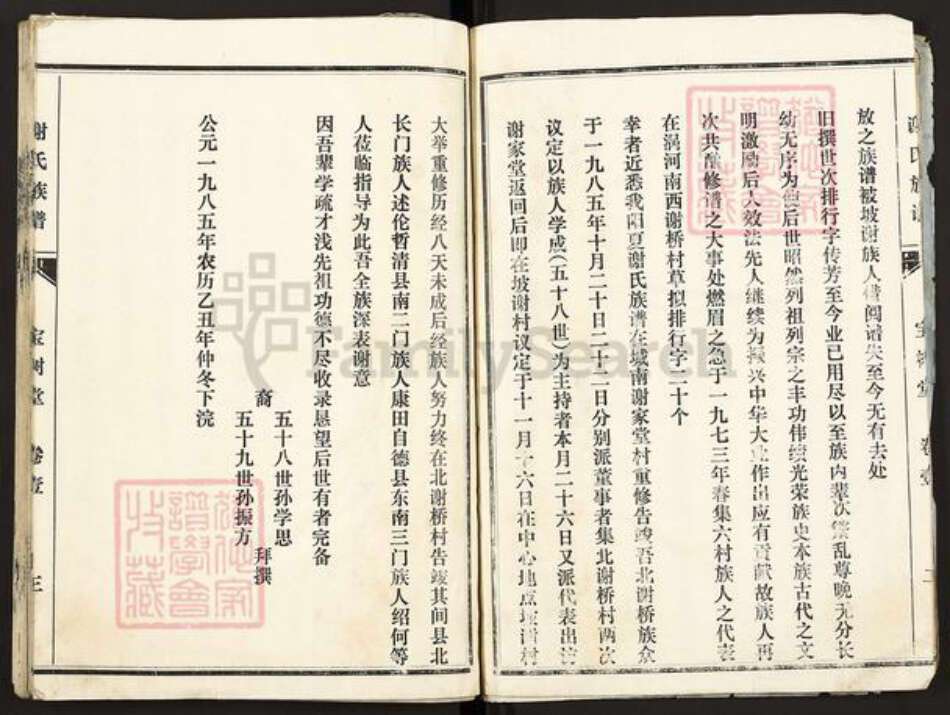 谢氏族谱
宝树堂
卷壹
二
放之族谱被坡谢族人借阅谱失至今无有去处
旧撰世次排行字传芳至今业已用尽以至族内辈次紊乱尊晚无分长
幼无序为使后世昭然列祖列宗之丰功伟绩光荣族史本族古代之文
明激励后人效法先人继续为振兴中华大业作出应有贡献故族人再
次共酿修谱之大事处燃眉之急于一九七三年春集六村族人之代表
在涡河南西谢桥村草拟排行字二十个
幸者近悉我阳夏谢氏族谱在城南谢家堂村重修告竣吾北谢桥族众
于一九八五年十月二十日二十二日分别派董事者集北谢桥村两次
议定以族人学成(五十八世)为主持者本月二十六日又派代表出访
谢家堂返回后即在坡谢村议定于十一月十六日在中心地点坡谢村
大举重修历经八天未成后经族人努力终在北谢桥村告竣其间县北
长门族人述伦哲清县南二门族人康田自德县东南三门族人绍何等
人莅临指导为此吾全族深表谢意
因吾辈学疏才浅先祖功德不尽收录恳望后世有者完备
裔
五十八世孙学思
五十九世孙振方
拜撰
公元一九八五年农历乙丑年仲冬下浣
谢氏族谱
宝树堂
卷壹
三
FamilySearch